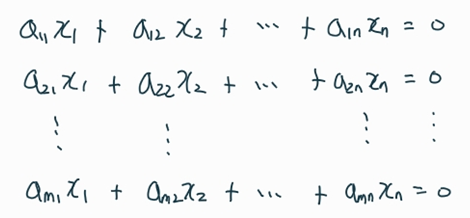 a₁₁x₁ + a₁₂x₂ + ⋯ + a₁ₙxₙ = 0
a₂₁x₁ + a₂₂x₂ + ⋯ + a₂ₙxₙ = 0
⋮ ⋮ ⋮ ⋮
aₘ₁x₁ + aₘ₂x₂ + ⋯ + aₘₙxₙ = 0